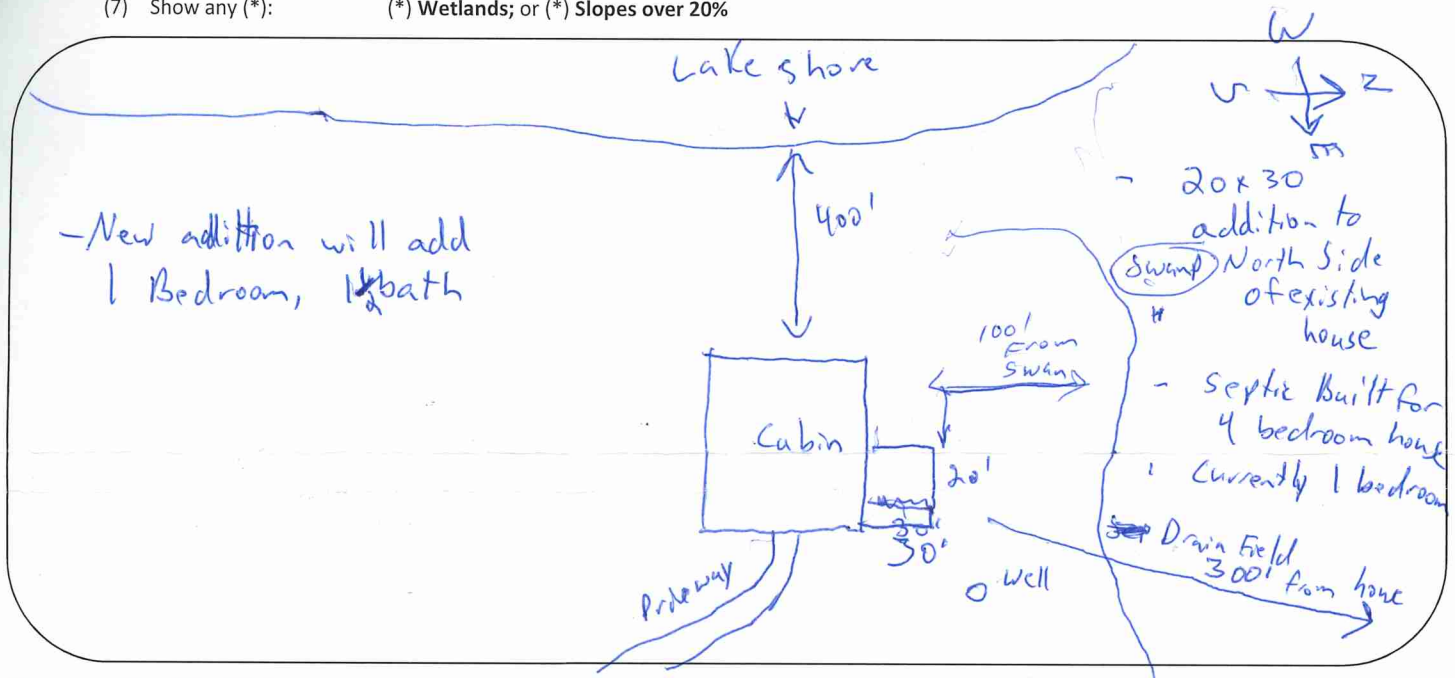 (7) Show any (*): (*) Wetlands; or (*) Slopes over 20%
W
Lake shore
S N
E
400'
- 20 x 30
addition to
Swamp North Side
of existing
house
- New addition will add
1 Bedroom, 1 1/2 bath
100'
From
Swamp
- Septic Built for
4 bedroom house
Currently 1 bedroom
Cabin
20'
30'
30'
Drain Field
300' from house
Well